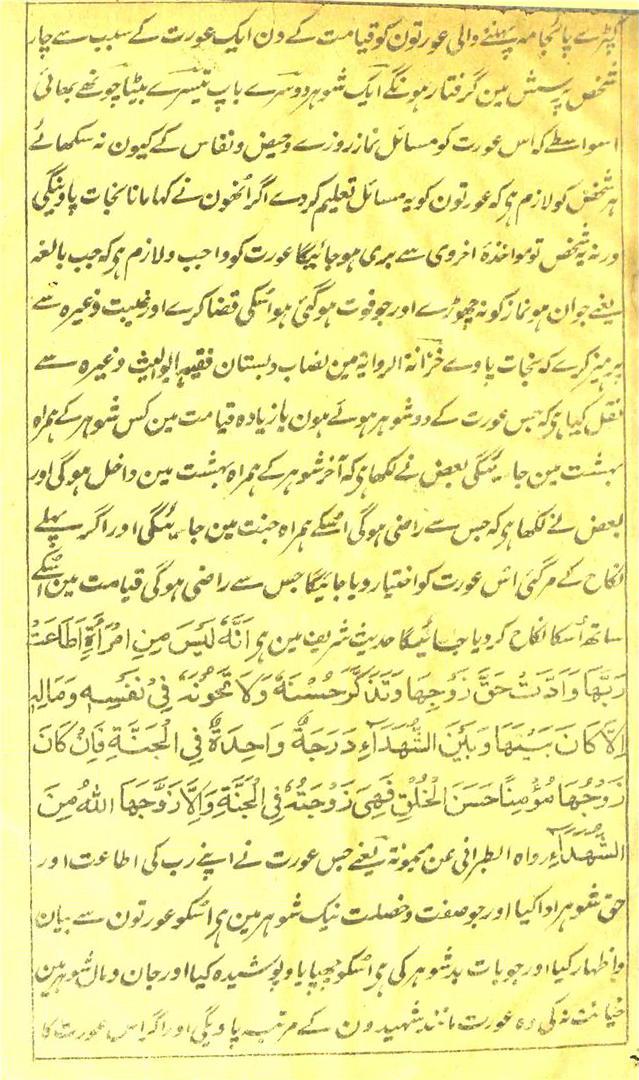 کپڑے پائجامہ پہننے والی عورتون کو قیامت کے دن ایک عورت کے سبب سے چار
شخص پرسش مین گرفتار ہونگے ایک شوہر دوسرے باپ تیسرے بیٹا چوتھے بھائی
اسواسطے کہ اس عورت کو مسائل نماز روزے وحیض ونفاس کے کیون نہ سکھائے
ہر شخص کو لازم ہو کہ عورتون کو یہ مسائل تعلیم کردے اگر انھون نے کہا مانا نجات پاوینگی
ورنہ یہ شخص تو مواخذۂ اخروی سے بری ہوجائیگا عورت کو واجب ولازم ہو کہ جب بالغہ
یعنے جوان ہو نماز کو نہ چھوڑے اور جو فوت ہوگئی ہو اسکی قضا کرے اور غیبت وغیرہ سے
پرہیز کرے کہ نجات پاوے خزانۃ الروایۃ مین نصاب وبستان فقیہ ابواللیث وغیرہ سے
نقل کیا ہو کہ جس عورت کے دو شوہر ہوئے ہون یا زیادہ قیامت مین کس شوہر کے ہمراہ
بہشت مین جائیگی بعض نے لکھا ہو کہ آخر شوہر کے ہمراہ بہشت مین داخل ہوگی اور
بعض نے لکھا ہو کہ جس سے راضی ہوگی اسکے ہمراہ جنت مین جائیگی اور اگر پہلے
نکاح کے مرگئی اس عورت کو اختیار دیا جائیگا جس سے راضی ہوگی قیامت مین اسکے
ساتھ اسکا نکاح کردیا جائیگا حدیث شریف مین ہو اَنَّهٗ لَیْسَ مِنِ امْرَأَةٍ اَطَاعَتْ
رَبَّهَا وَاَدَّتْ حَقَّ زَوْجِهَا وَتَذَکَّرَ حُسْنَهٗ وَلَا تَخُوْنُهٗ فِیْ نَفْسِهٖ وَمَالِهٖ
اِلَّا کَانَ بَیْنَهَا وَبَیْنَ الشُّهَدَآءِ دَرَجَةٌ وَاحِدَةٌ فِی الْجَنَّةِ فَاِنْ کَانَ
زَوْجُهَا مُؤْمِنًا حَسَنَ الْخُلُقِ فَهِیَ زَوْجَتُهٗ فِی الْجَنَّةِ وَاِلَّا زَوَّجَهَا اللّٰهُ مِنَ
الشُّهَدَآءِ رواہ الطبرانی عن میمونۃ یعنے جس عورت نے اپنے رب کی اطاعت اور
حق شوہر ادا کیا اور جو صفت وخصلت نیک شوہر مین ہو اسکو عورتون سے بیان
واظہار کیا اور جو بات بد شوہر کی ہو اسکو چھپایا وپوشیدہ کیا اور جان ومال شوہر مین
خیانت نہ کی وہ عورت مانند شہیدون کے مرتبہ پاویگی اور اگر اس عورت کا